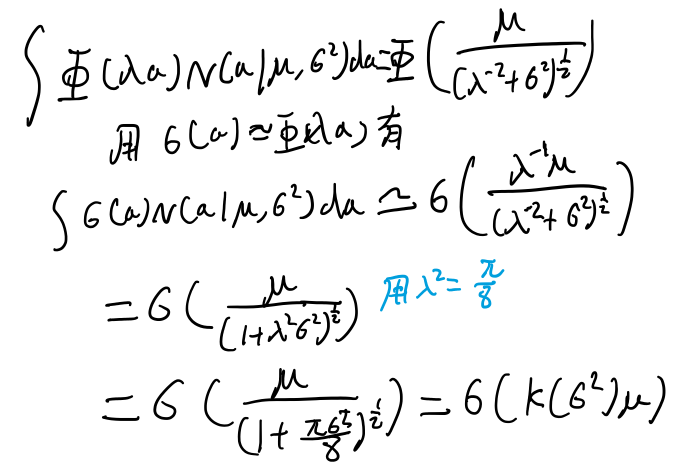 ∫ Φ(λa) N(a|μ, σ²) da = Φ( μ / (λ⁻² + σ²)^{1/2} )
用 σ(a) ≈ Φ(λa) 有
∫ σ(a) N(a|μ, σ²) da ≃ σ( λ⁻¹μ / (λ⁻² + σ²)^{1/2} )
= σ( μ / (1 + λ²σ²)^{1/2} ) 用 λ² = π/8
= σ( μ / (1 + πσ²/8)^{1/2} ) = σ( K(σ²) μ )